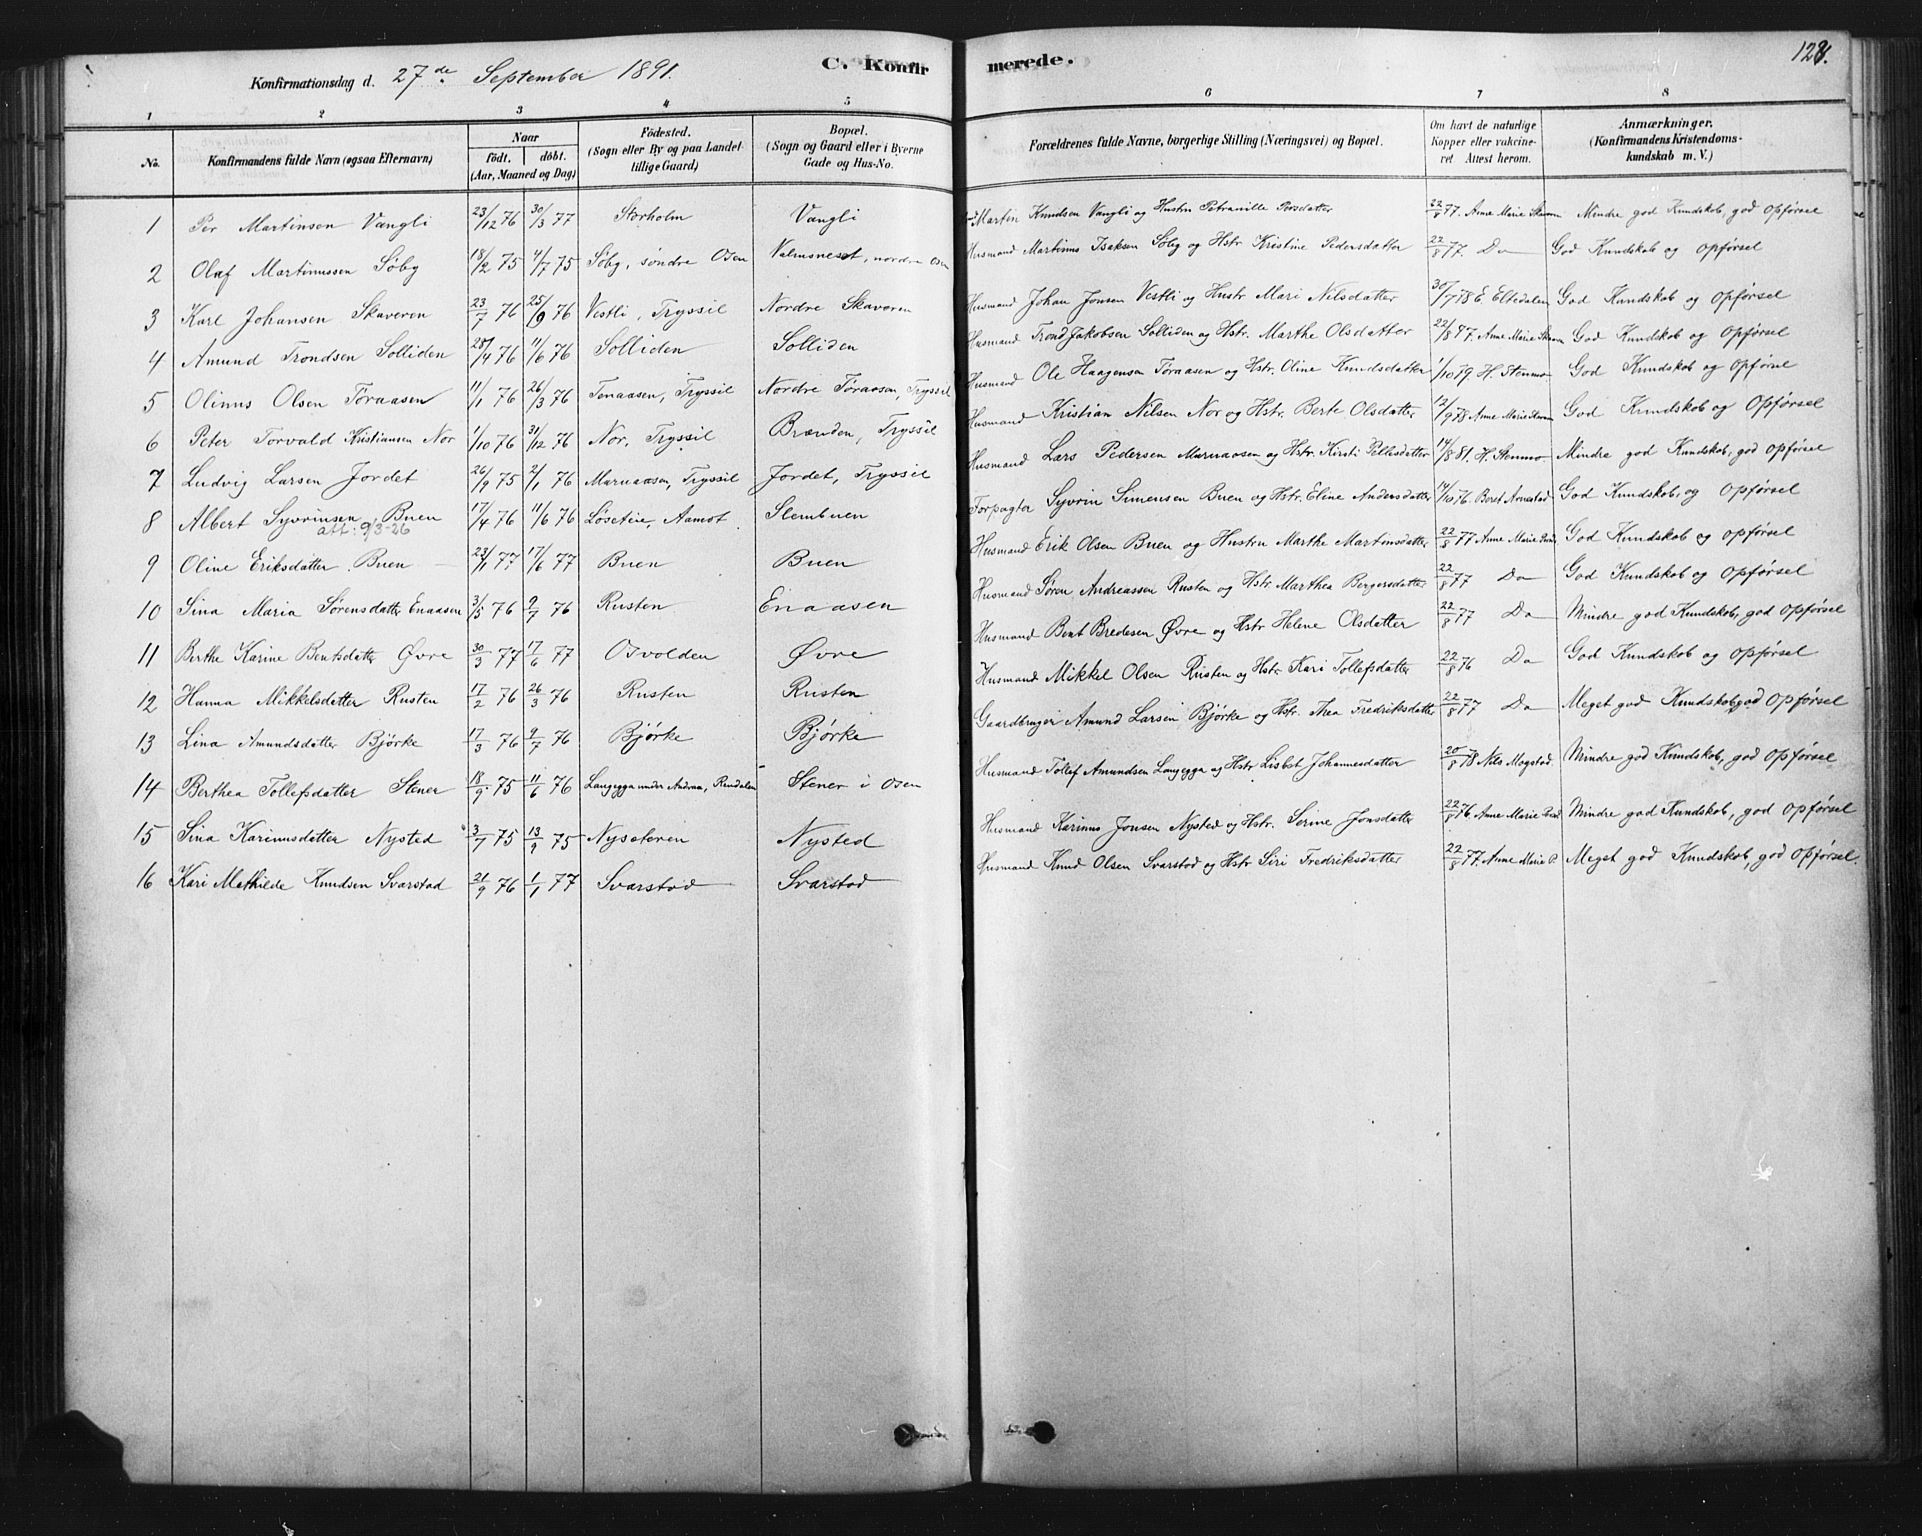 Konfirmationsdag d. 27de September 1891. C. Konfirmerede. 128.
1 2 3 4 5 6 7 8
No. Konfirmandens fulde Navn (ogsaa Efternavn) Naar født. døbt. (Aar, Maaned og Dag) Fødested. (Sogn eller By og paa Landet tillige Gaard) Bopæl. (Sogn og Gaard eller i Byerne Gade og Hus-No. Forældrenes fulde Navne, borgerlige Stilling (Næringsvei) og Bopæl. Om havt de naturlige Kopper eller vakcineret Attest herom. Anmærkninger. (Konfirmandens Kristendomskundskab m. V.)
1 Per Martinsen Vangli 23/12 76 30/3 77 Storholm Vangli Martin Knudsen Vangli og Hustru Petranille Persdatter 22/8 77. Anne Marie Skaaren Mindre god Kundskab, god Opførsel
2 Olaf Martinussen Søby 18/2 75 4/7 75 Søby, søndre Osen Valmsneset, nordre Osen Husmand Martinus Isaksen Søby og Hstr Kristine Pedersdatter 22/8 77. Do God Kundskab og Opførsel
3 Karl Johansen Skaveren 23/7 76 25/9 76 Vestli, Tryssil Nordre Skaveren Husmand Johan Jonsen Vestli og Hustr Mari Nilsdatter 30/7 78 E. Eltedalen God Kundskab og Opførsel
4 Amund Trondsen Solliden 28/4 76 11/6 76 Solliden Solliden Husmand Trond Jakobsen Solliden og Hstr. Marthe Olsdatter 22/8 77. Anne Marie Skaaren God Kundskab og Opførsel
5 Olinus Olsen Føraasen 11/1 76 26/3 76 Tenaasen, Tryssil Nordre Føraasen, Tryssil Husmand Ole Haagensen Føraasen og Hstr. Oline Knudsdatter 1/10 79 H. Stenmo God Kundskab og Opførsel
6 Peter Torvald Kristiansen Nor 1/10 76 31/12 76 Nor, Tryssil Brænden, Tryssil Husmand Kristian Nilsen Nor og Hstr. Berte Olsdatter 12/9 78 Anne Marie God Kundskab og Opførsel
7 Ludvig Larsen Jordet 26/9 75 2/1 76 Marnaasen, Tryssil Jordet, Tryssil Husmand Lars Pedersen Marnaasen og Hstr. Kirsti Pellesdatter 14/8 81. H. Stenmo Mindre god Kundskab, god Opførsel
8 Albert Syvrinsen Buen 17/4 76 11/6 76 Løseteie, Aamot Slembuen Forpagter Syvrin Simensen Buen og Hstr. Eline Andersdatter 14/10 76 Beret Arnestad God Kundskab, og Opførsel
att. 9/3-26
9 Oline Eriksdatter Buen 23/1 77 17/6 77 Buen Buen Husmand Erik Olsen Buen og Hustru Marthe Martinsdatter 22/8 77 Anne Marie God Kundskab og Opførsel
10 Sina Maria Sørensdatter Enaasen 3/5 76 9/7 76 Rusten Enaasen Husmand Søren Andreassen Rusten og Hstr Marthea Bergersdatter 22/8 77 Do God Kundskab og Opførsel
11 Berthe Karine Bentsdatter Øvre 30/3 77 17/6 77 Osvolden Øvre Husmand Bent Bredesen Øvre og Hstr Helene Olsdatter 22/8 77 Do Mindre god Kundskab, god Opførsel
12 Hanna Mikkelsdatter Rusten 17/2 76 26/3 76 Rusten Rusten Husmand Mikkel Olsen Rusten og Hstr Kari Tollefsdatter 22/8 76 Do God Kundskab og Opførsel
13 Lina Amundsdatter Bjørke 17/3 76 9/7 76 Bjørke Bjørke Gaardbruger Amund Larsen Bjørke og Hstr. Thea Fredriksdatter 22/8 77 Do Meget god Kundskab, god Opførsel
14 Berthea Tollefsdatter Stener 18/9 75 11/6 76 Langegga under Andraa, Rendalen Stener i Osen Husmand Tollef Amundsen Langegga og Hstr Lisbet Johannesdatter 20/8 78 Nils Mogstad Mindre god Kundskab, god Opførsel
15 Sina Karinusdatter Nysted 3/7 75 13/9 75 Nyseteren Nysted Husmand Karinus Jonsen Nysted og Hstr. Serine Jonsdatter 22/8 76 Anne Marie Mindre god Kundskab, god Opførsel
16 Kari Mathilde Knudsen Svarstad 21/9 76 1/1 77 Svarstad Svarstad Husmand Knud Olsen Svarstad og Hstr Siri Fredriksdatter 22/8 77. Anne Marie P. Meget god Kundskab, god Opførsel.